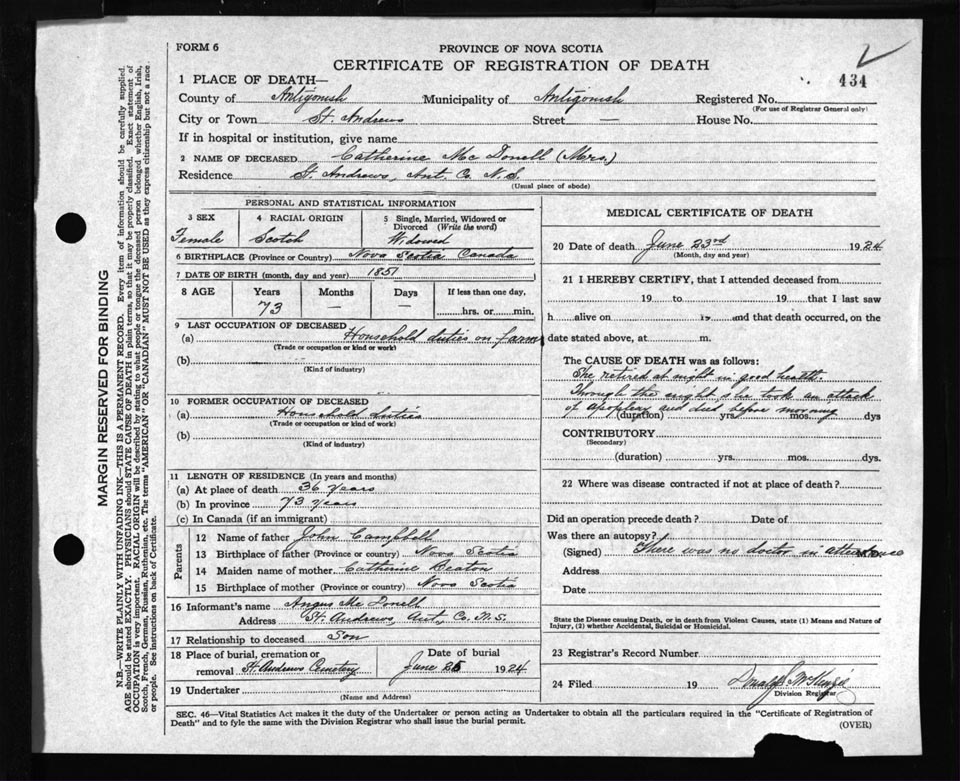 FORM 6
PROVINCE OF NOVA SCOTIA
CERTIFICATE OF REGISTRATION OF DEATH
434
1 PLACE OF DEATH—
County of Antigonish Municipality of Antigonish Registered No.
(For use of Registrar General only)
City or Town St. Andrews Street — House No.
If in hospital or institution, give name
2 NAME OF DECEASED Catherine Mc Donell (Mrs.)
Residence St. Andrews, Ant. Co. N.S.
(Usual place of abode)
PERSONAL AND STATISTICAL INFORMATION
3 SEX 4 RACIAL ORIGIN 5 Single, Married, Widowed or Divorced (Write the word)
Female Scotch Widowed
6 BIRTHPLACE (Province or Country) Nova Scotia Canada
7 DATE OF BIRTH (month, day and year) 1851
8 AGE Years Months Days If less than one day,
73 — — hrs. or min.
9 LAST OCCUPATION OF DECEASED
(a) Household duties on farm
(Trade or occupation or kind or work)
(b)
(Kind of industry)
10 FORMER OCCUPATION OF DECEASED
(a) Household duties
(Trade or occupation or kind of work)
(b)
(Kind of industry)
11 LENGTH OF RESIDENCE (In years and months)
(a) At place of death 36 years
(b) In province 73 years
(c) In Canada (if an immigrant)
Parents
12 Name of father John Campbell
13 Birthplace of father (Province or country) Nova Scotia
14 Maiden name of mother Catherine Beaton
15 Birthplace of mother (Province or country) Nova Scotia
16 Informant's name Angus Mc Donell
Address St. Andrews, Ant, Co. N.S.
17 Relationship to deceased Son
18 Place of burial, cremation or removal St Andrews Cemetery Date of burial June 25 1924
19 Undertaker
(Name and Address)
MEDICAL CERTIFICATE OF DEATH
20 Date of death June 23rd 1924
(Month, day and year)
21 I HEREBY CERTIFY, that I attended deceased from
19 to 19 that I last saw
h alive on 19 and that death occurred, on the
date stated above, at m.
The CAUSE OF DEATH was as follows:
She retired at night in good health
Through the night she took an attack
of apoplexy and died before morning
(duration) yrs. mos. dys
CONTRIBUTORY
(Secondary)
(duration) yrs. mos. dys.
22 Where was disease contracted if not at place of death?
Did an operation precede death? Date of
Was there an autopsy?
(Signed) There was no doctor in attendance
Address
Date
State the Disease causing Death, or in death from Violent Causes, state (1) Means and Nature of
Injury, (2) whether Accidental, Suicidal or Homicidal.
23 Registrar's Record Number
24 Filed 19
Division Registrar
SEC. 46—Vital Statistics Act makes it the duty of the Undertaker or person acting as Undertaker to obtain all the particulars required in the "Certificate of Registration of
Death" and to fyle the same with the Division Registrar who shall issue the burial permit.
(OVER)
MARGIN RESERVED FOR BINDING
N.B.—WRITE PLAINLY WITH UNFADING INK—THIS IS A PERMANENT RECORD. Every item of information should be carefully supplied.
AGE should be stated EXACTLY. PHYSICIANS should STATE CAUSE OF DEATH in plain terms, so that it may be properly classified. Exact statement of
OCCUPATION is very important. RACIAL ORIGIN will be described by stating to what people or tongue the deceased person belonged whether English, Irish,
Scotch, French, German, Russian, Ruthenian, etc. The terms "AMERICAN" OR "CANADIAN" MUST NOT BE USED as they express citizenship but not a race
or people. See instructions on back of Certificate.